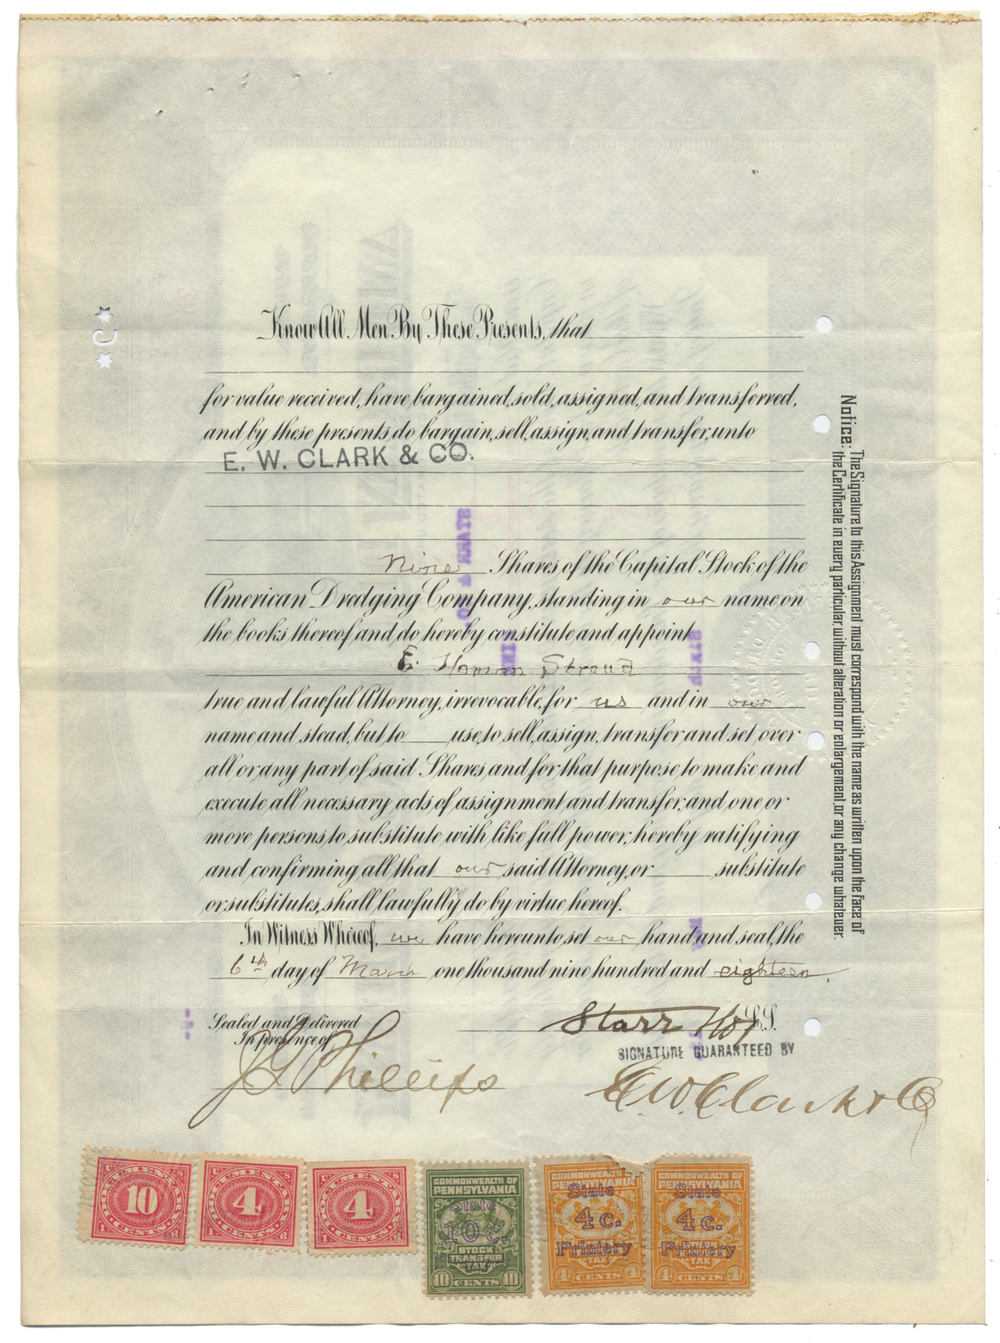 Know All Men By These Presents, that
for value received, have bargained, sold, assigned, and transferred,
and by these presents do bargain, sell, assign, and transfer, unto
E. W. CLARK & CO.
Nine Shares of the Capital Stock of the
American Dredging Company, standing in our name on
the books thereof and do hereby constitute and appoint
E. Stroud
true and lawful Attorney, irrevocable, for us and in our
name and stead, but to use, to sell, assign, transfer and set over
all or any part of said Shares, and for that purpose to make and
execute all necessary acts of assignment and transfer, and one or
more persons, to substitute with like full power, hereby ratifying
and confirming all that our said Attorney, or substitute
or substitutes, shall lawfully do by virtue hereof.
In Witness Whereof, we have hereunto set our hand and seal, the
6th day of March one thousand nine hundred and eighteen.
Sealed and Delivered
In presence of
Starr L.S.
SIGNATURE GUARANTEED BY
Phillips
E W Clark & Co
Notice: The Signature to this Assignment must correspond with the name as written upon the Face of
the Certificate in every particular, without alteration or enlargement, or any change whatever.
10
CENTS
4
CENTS
4
CENTS
COMMONWEALTH OF
PENNSYLVANIA
State
10 c.
STOCK
TRANSFER
TAX
10 CENTS 10
COMMONWEALTH OF
State
4 c.
Printery
TAX
4 CENTS 4
COMMONWEALTH OF
PENNSYLVANIA
State
4 c.
Printery
TAX
4 CENTS 4